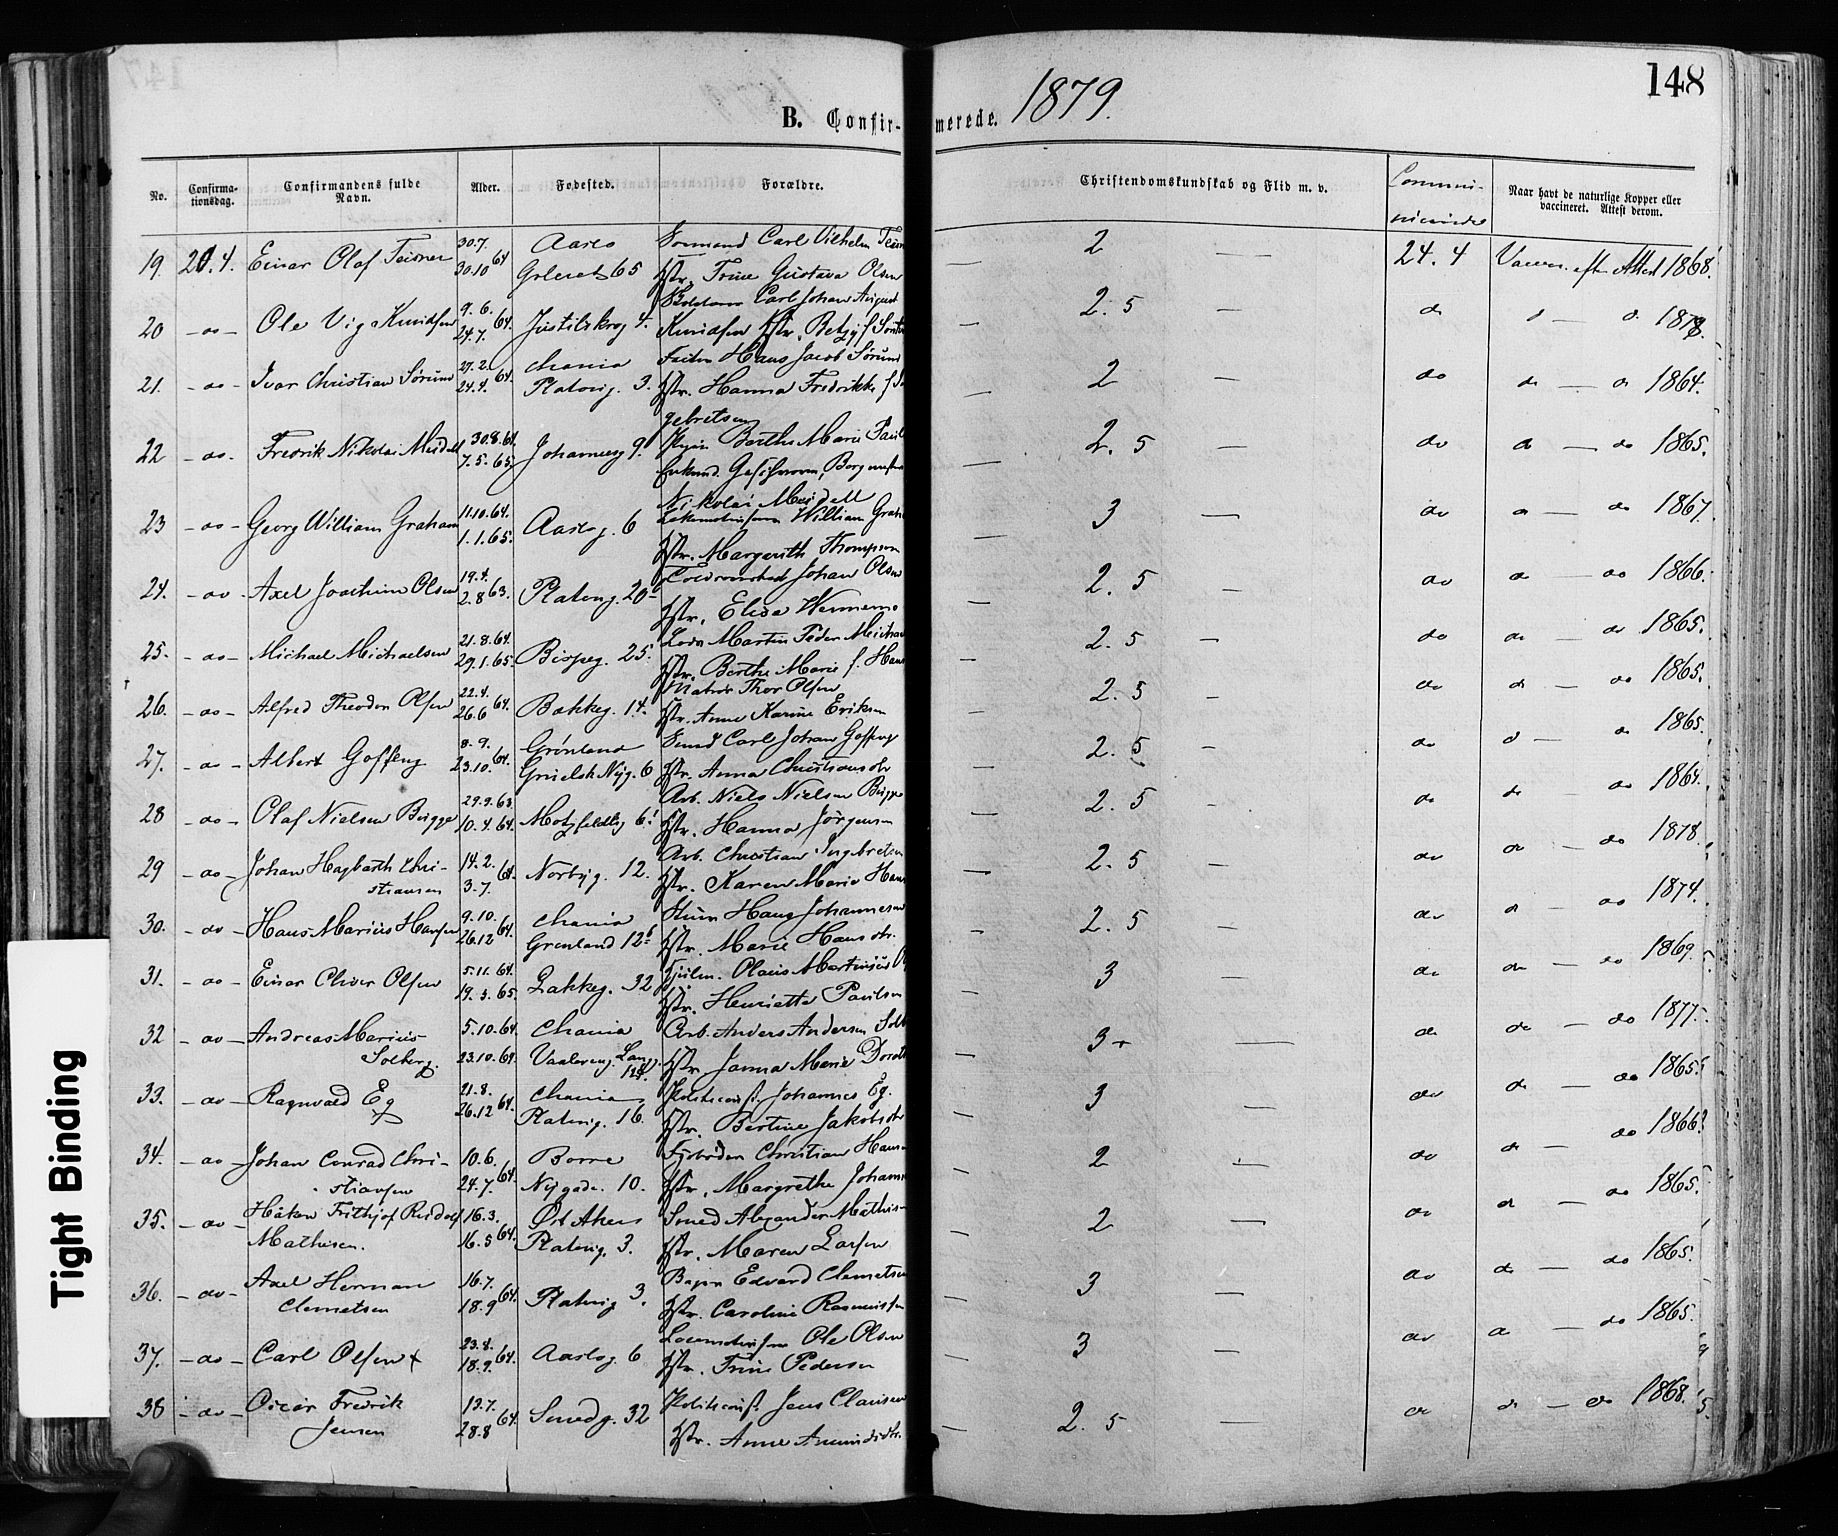 148
B. Confir- merede. 1879.
No. Confirma-tionsdag. Confirmandens fulde Navn. Alder. Fødested. Forældre. Christendomskundskab og Flid m. v. Naar havt de naturlige Kopper eller vaccineret. Attest derom.
19. 20.4. Einar Olaf 30.7. 30.10 64 Aaslo 65 Carl Vilhelm
Ztr. Trine Gustava Olsen 2 — 24.4 Attest 1868.
Carl Johan August
20 -do- Ole Vig Knudsen 9.6. 24.7. 64. 4. Knudsen Ztr. Betzy f. 2.5 — do d — d. 1878.
21. -do- Ivar Christian Sørum 27.2. 24.4. 64. Chania Platoug. 3. Hans Jacob Sørum
Ztr. Hanna Fredrikke f. 2 — do do — do 1864.
gebretsen
22 -do- Fredrik Nikolai Meidell 30.8.64. 7.5.65. 9. Berthe Marie
Nikolai Meidell 2.5 — do do — do 1865.
23 -do- Georg William Graham 11.10.64. 1.1.65. Aaslog. 6 William
Ztr. Margereth Thompson 3 — do do — do 1867.
24. -do- Axel Joachim Olsen 19.4. 2.8 63. Platoug. 20 Johan Olsen
Ztr. Elise 2.5 — do do — do 1866.
25. -do- Michael Michaelsen 21.8.64. 29.1.65. Bispeg. 25. Martin Peder
Ztr. Berthe Marie f. 2.5 — do do — do 1865.
26. -do- Alfred Theodor Olsen 22.4. 26.6 64. Bakkeg. 14. Matros Thor Olsen
Ztr. Anne Karine Eriksen 2.5 — do do — do 1865.
27. -do- Albert Goffeng 8.9. 23.10. 64. Grønland 6 Smed Carl Johan Goffeng
Ztr. Anna Christiansdtr 2.5 — do d — do 1865.
28 -do- Olaf Nielsen Bugge 29.9.63. 10.4.64. Motzfeldtsg 6. Arb. Niels Nielsen Bugge
Ztr. Hanna Jørgensen 2.5 — do do — do 1864.
29 -do- Johan Hagbarth Chri-stiansen 14.2. 3.7. 64. Norbyg. 12. Arb. Christian Ingbretsen
Ztr. Karen Marie 2.5 — do do — do 1878.
30. -do- Hans Marius Hansen 9.10. 26.12 64. Chania Grønland 12 Hans Johannesen
Ztr. Marie Hansdtr. 2.5 — do do — do 1874.
31. -do- Einar Oliver Olsen 5.11.64. 19.3.65. Bakkeg. 32 Olaus Martinius
Ztr. Henriette Paulsen 3 — do do — do 1869.
32 -do- Andreas Marius Solberg. 5.10.64. 23.10.64. Chania Arb. Anders Andersen
Ztr. Janna Marie 3+ — do do — do 1877.
33. -do- Ragnvald Eg 21.8. 26.12 64. Chania Platoug. 16. Politiconst. Johannes Eg.
Ztr. Bertine Jakobsdtr 3 — do do — do 1865.
34. -do- Johan Conrad Chri-stiansen 10.6. 24.7. 64. Borre Nygade. 10. Christian
Ztr. Margrethe 2 — do do — do 1866.
35. -do- Håkon Frithjof Rudolf Mathisen. 16.3. 16.5 64. Øst Akers Platoug. 3. Smed Alexander
Ztr. Maren Larsen 2 — do do — do 1865.
36. -do- Axel Herman Clemetsen 16.7. 18.9 64. Platoug 3. Edvard Clemetsen
Ztr. Caroline Rasmussen 3 — do do — do 1865.
37. -do- Carl Olsen + 23.8. 18.9. 64. Aaslog. 6 Ole Olsen
Ztr. Trine Pedersen 3 — do do — do 1865.
38 -do- Oscar Fredrik Jensen 13.7. 28.8 64. Smedg. 32 Politiconst. Jens Clausen
Ztr. Anne Amundsdtr. 2.5 — do do — do 1868.
Tight Binding